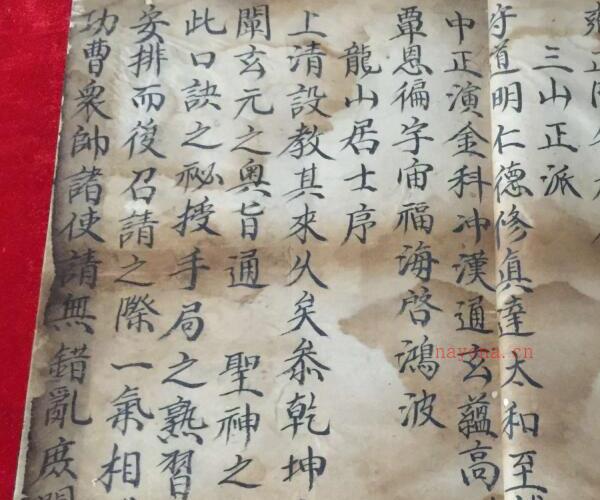 三山正派
守道明仁德修真達太和至
中正演金科冲漢通玄蘊高
覃恩徧宇宙福海啓鴻波
龍山居士序
上清設教其來久矣叅乾坤
闡玄元之奥旨通 聖神之
此口訣之祕授手局之熟習
安排而後召請之際一氣相
功曹衆帥諸使請無錯亂庻
nayona.cn